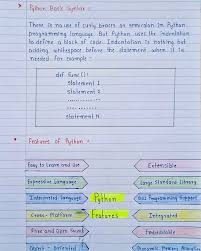 Python Basic Syntax :
There is no use of curly braces or semicolon in Python
programming language. But Python uses the indentation
to define a block of code. Indentation is nothing but
adding whitespace before the statement when it is
needed. For example :
def func():
statement 1
statement 2
..............
..............
statement N
Features of Python :
Easy to Learn and Use
Extensible
Expressive Language
Large Standard Library
Interpreted Language
Python
GUI Programming Support
Cross-Platform
Features
Integrated
Free and Open Source
Embeddable
Object-Oriented
Dynamic Memory Allocation